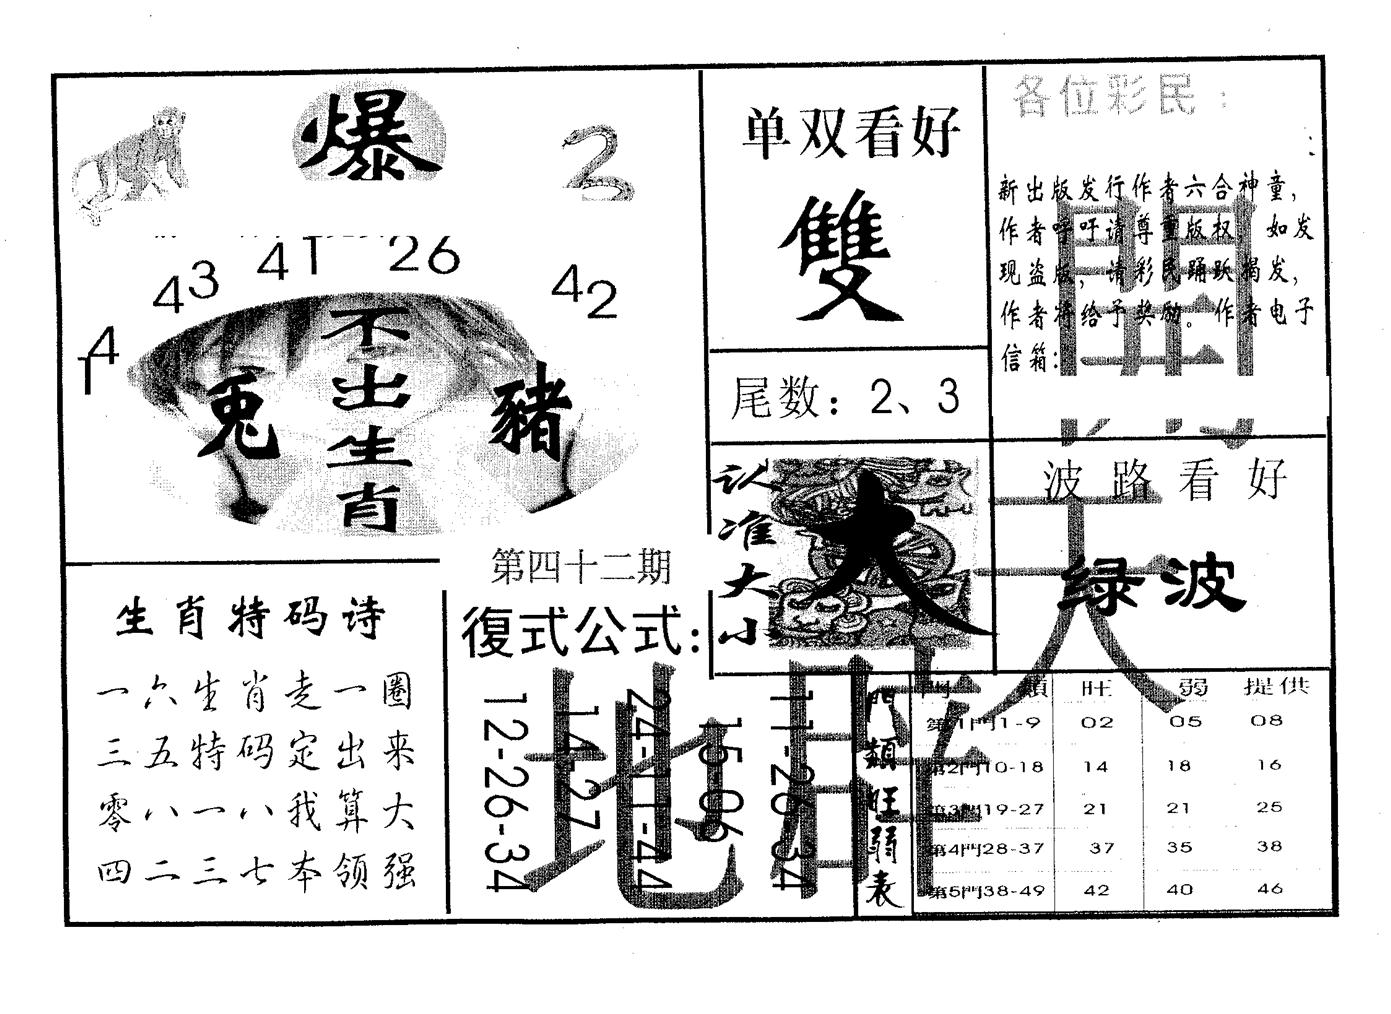 爆
14
43
41
26
42
不出生肖
兔
豬
生肖特码诗
一六生肖走一圈
三五特码定出来
零八一八我算大
四二三七本领强
第四十二期
復式公式:
12-26-34
14-27
24-11-44
15-06
11-26-34
单双看好
雙
尾数：2、3
认准大小
大
各位彩民：
新出版发行作者六合神童，
作者呼吁请尊重版权，如发
现盗版，请彩民踊跃揭发，
作者将给予奖励。作者电子
信箱：
波路看好
绿波
門類旺弱表
門類 旺 弱 提供
第1門1-9 02 05 08
第2門10-18 14 18 16
第3門19-27 21 21 25
第4門28-37 37 35 38
第5門38-49 42 40 46
地
天